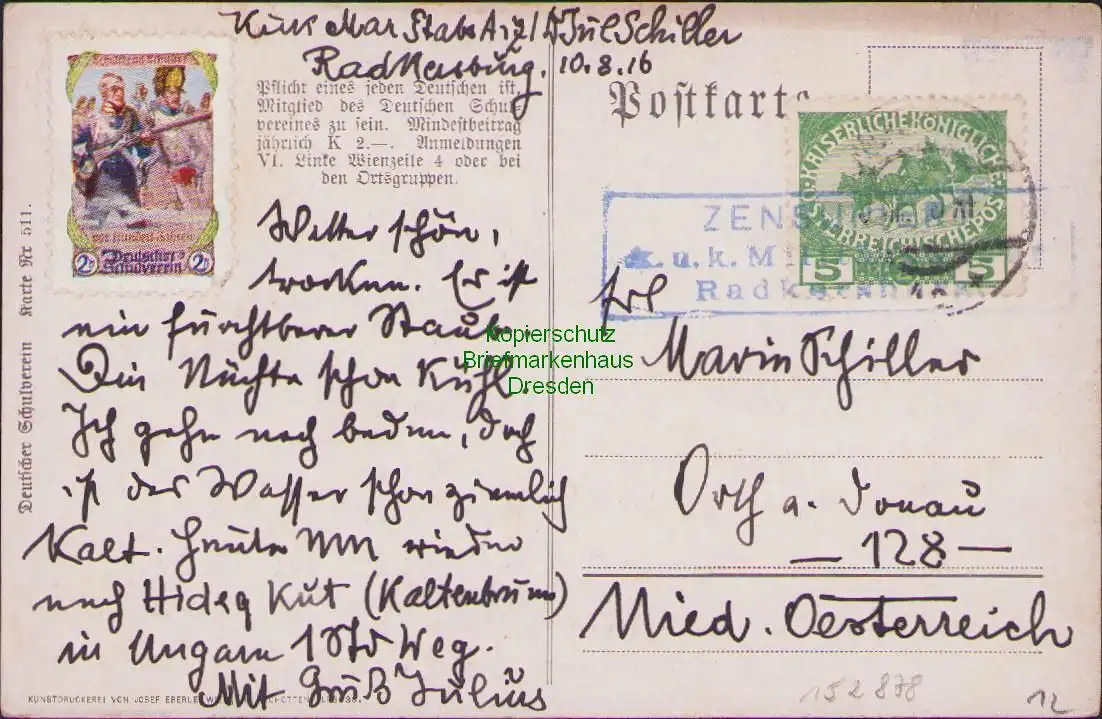 KuK Mar Stabs Arzt Dr Jul Schiller
Radkersburg. 10.8.16
Pflicht eines jeden Deutschen ist,
Mitglied des Deutschen Schul-
vereines zu sein. Mindestbeitrag
jährlich K 2.—. Anmeldungen
VI. Linke Wienzeile 4 oder bei
den Ortsgruppen.
Postkarte
vor hundert Jahren
2h Deutscher Schulverein 2h
KAISERLICHE KÖNIGLICHE
ÖSTERREICHISCHE POST
5 5
ZENSURIERT
k.u.k. Mil
Radkersburg
Wetter schön,
trocken. Er ist
ein furchtbarer Staub.
Die Nächte schon kühl.
Ich gehe noch baden, doch
ist das Wasser schon ziemlich
kalt. Heute NM wieder
nach Hideg Kut (Kaltenbrunn)
in Ungarn 1 Std Weg.
Mit Gruß Julius
Frl
Marie Schiller
Orth a. Donau
— 128 —
Nied. Oesterreich
Deutscher Schulverein Karte Nr 511.
KUNSTDRUCKEREI VON JOSEF EBERLE
Kopierschutz
Briefmarkenhaus
Dresden
152878
12